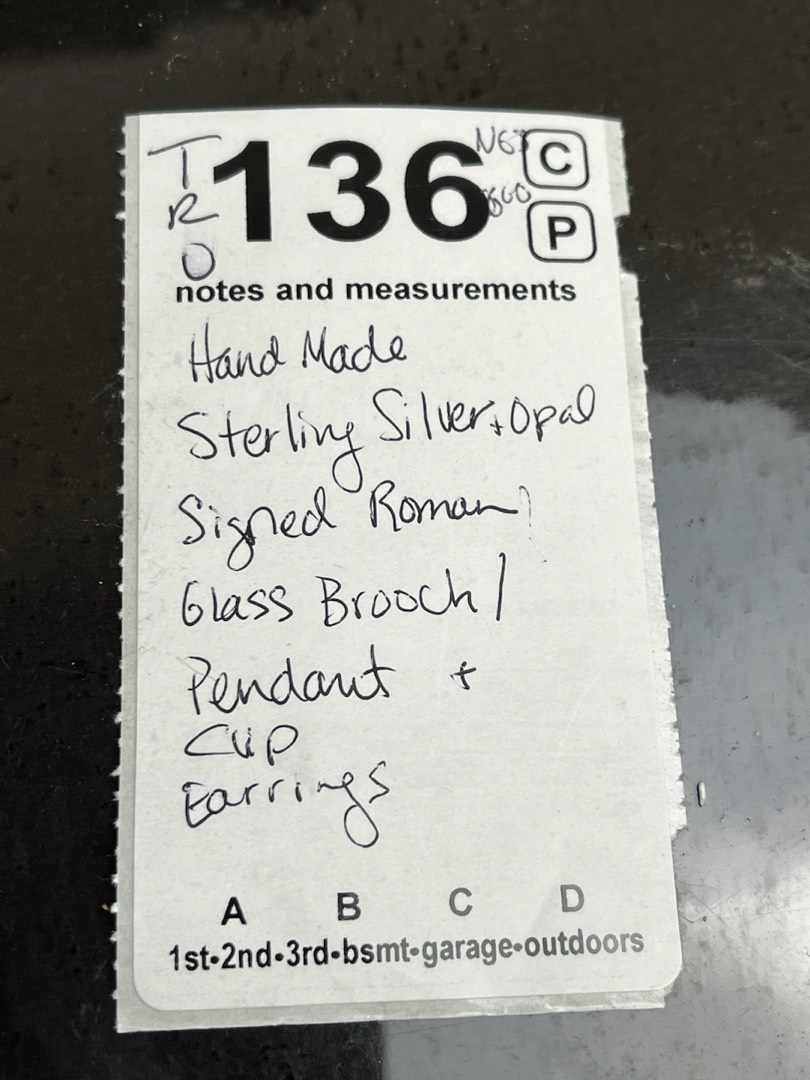 TRO
136
C
P
notes and measurements
Hand Made
Sterling Silver + Opal
Signed Roman
Glass Brooch /
Pendant +
Cup
Earrings
A B C D
1st•2nd•3rd•bsmt•garage•outdoors